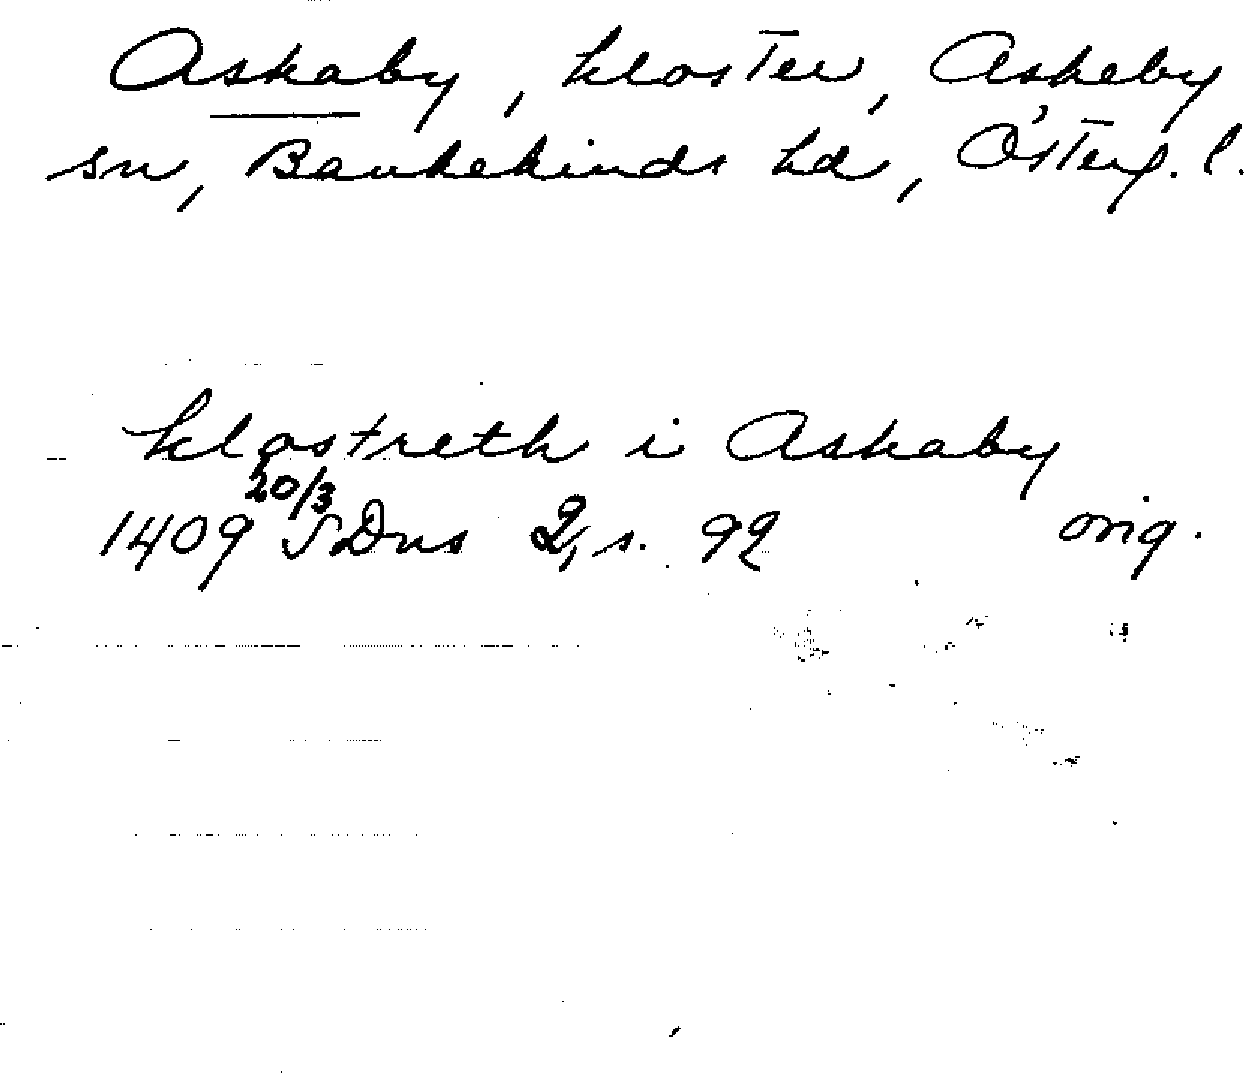 Askaby, kloster, Askeby
sn, Bankekinds hd, Österg. l.
klostreth i Askaby
20/3
1409 SDns 2, s. 92 orig.